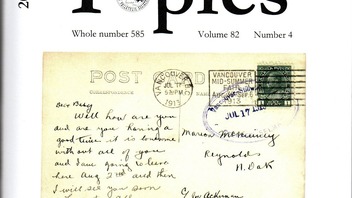 Topics
Whole number 585 Volume 82 Number 4
POST CARD
CORRESPONDENCE
VANCOUVER, B.C.
JUL 17
5 PM
1913
VANCOUVER
MID-SUMMER
FAIR
1913
JUL 17 1913
Dear Bessy
Well how are you
and are you having a
good time it is lonesome
without all of you
and I am going to leave
here Aug 2nd and then
I will see you soon
Marion McKinney
Reynolds
N. Dak
C/o Ackerman